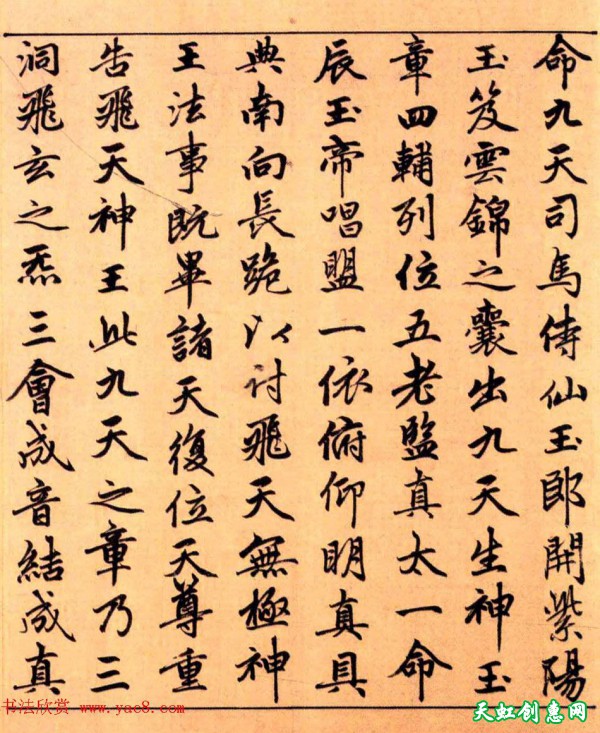 命九天司馬侍仙玉郎開紫陽
玉笈雲錦之囊出九天生神玉
章四輔列位五老監真太一命
辰玉帝唱盟一依俯仰明真具
典南向長跪以付飛天無極神
王法事既畢諸天復位天尊重
告飛天神王此九天之章乃三
洞飛玄之炁三會成音結成真
书法欣赏 www.yac8.com
天虹创惠网